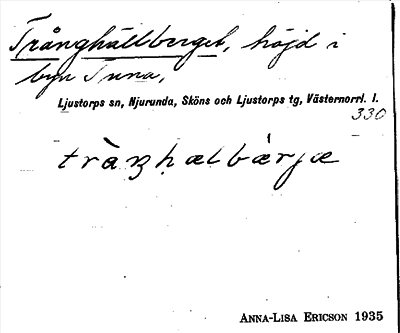 Trånghällberget, höjd i
byn Tuna,
Ljustorps sn, Njurunda, Sköns och Ljustorps tg, Västernorrl. l.
330
tràŋhælbǽrjæ
ANNA-LISA ERICSON 1935